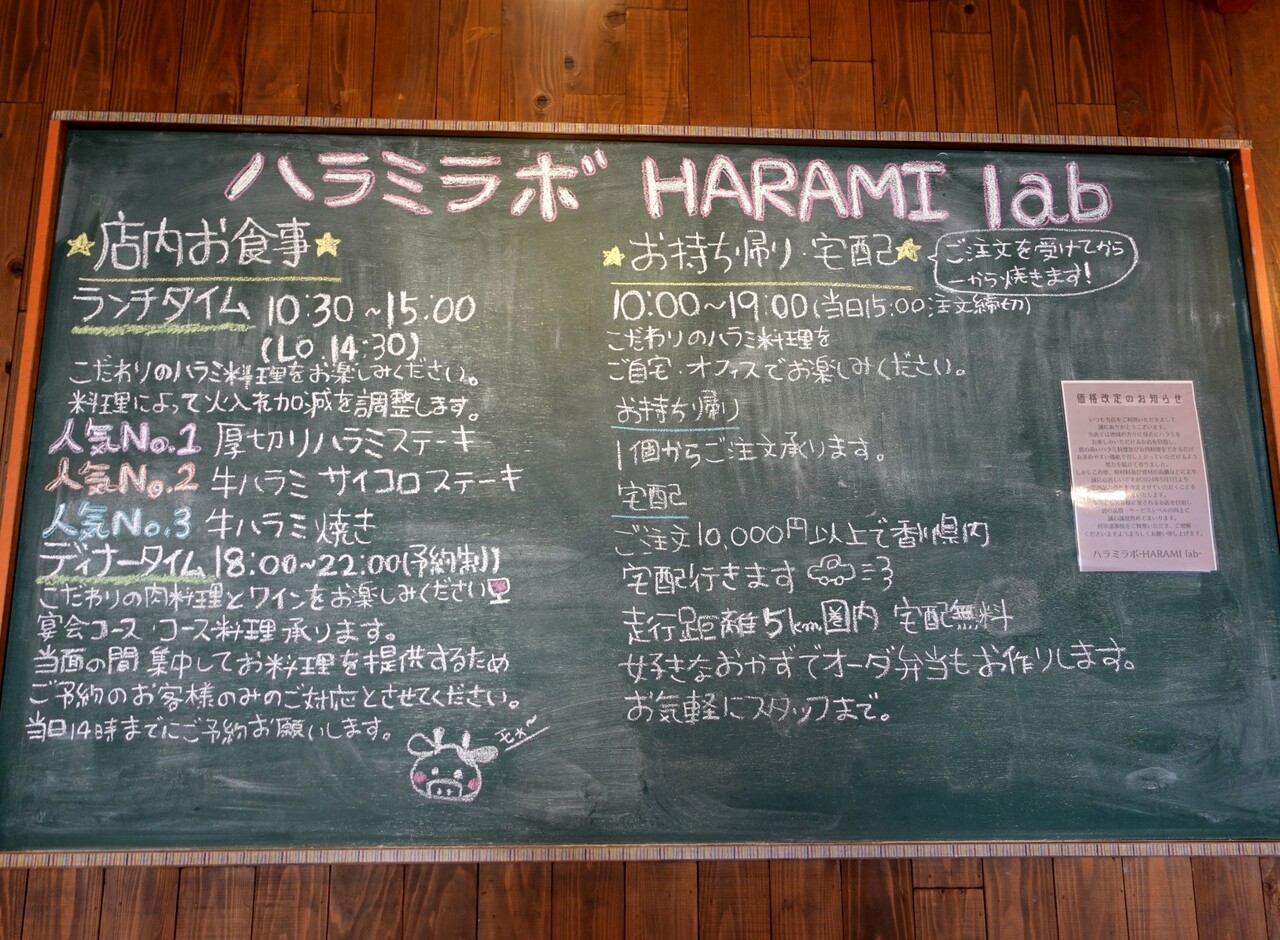 ハラミラボ HARAMI lab
店内お食事
ランチタイム 10:30~15:00
(L.O.14:30)
こだわりのハラミ料理をお楽しみください。
料理によって火入れ加減を調整します。
人気No.1 厚切りハラミステーキ
人気No.2 牛ハラミ サイコロステーキ
人気No.3 牛ハラミ焼き
ディナータイム 18:00~22:00(予約制)
こだわりの肉料理とワインをお楽しみください
宴会コース・コース料理承ります。
当面の間 集中してお料理を提供するため
ご予約のお客様のみのご対応とさせてください。
当日14時までにご予約お願いします。
モォ~
お持ち帰り・宅配
ご注文を受けてから
一から焼きます!
10:00~19:00(当日15:00注文締切)
こだわりのハラミ料理を
ご自宅・オフィスでお楽しみください。
お持ち帰り
1個からご注文承ります。
宅配
ご注文10,000円以上で香川県内
宅配行きます
走行距離5km圏内 宅配無料
好きなおかずでオーダ弁当もお作りします。
お気軽にスタッフまで。
価格改定のお知らせ
いつも当店をご利用いただきまして
誠にありがとうございます。
ハラミラボ-HARAMI lab-